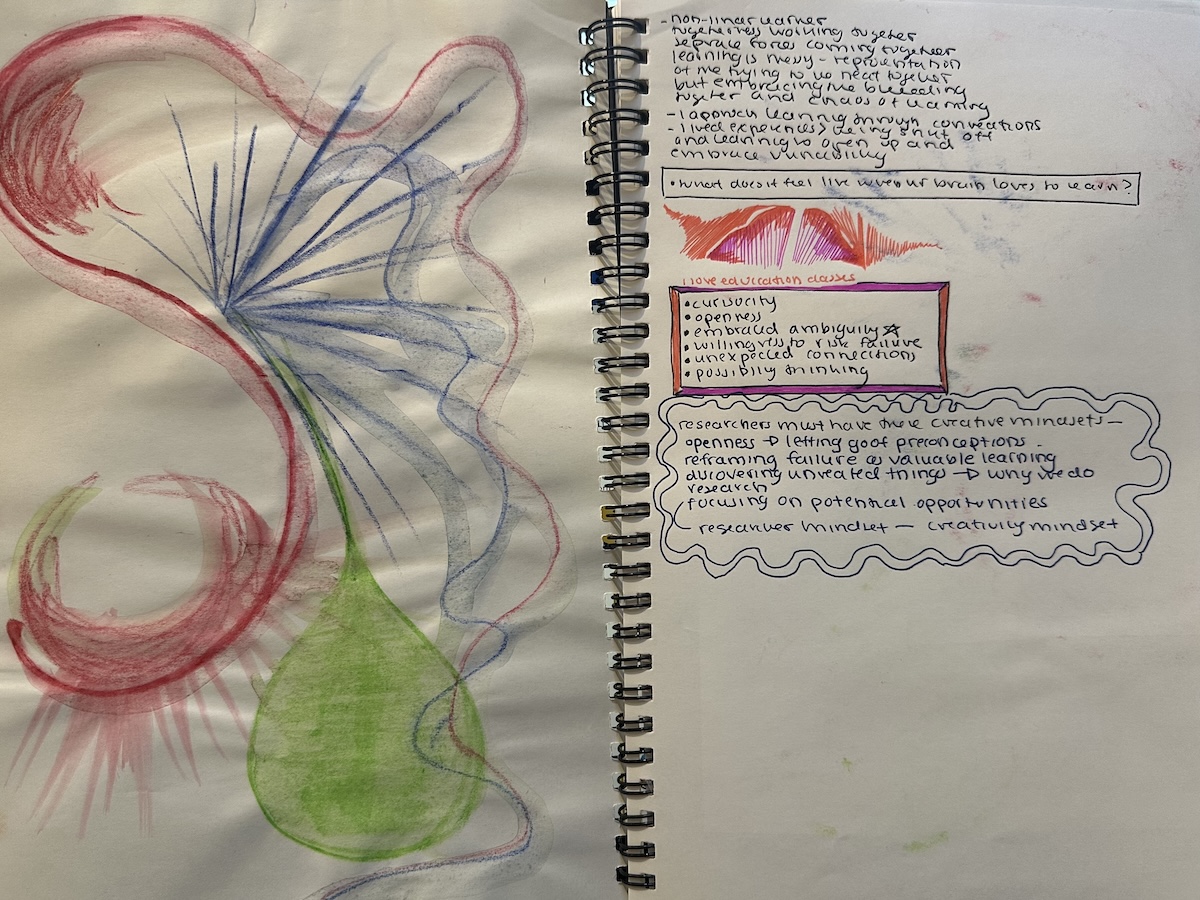 - non-linear learner
togetherness working together
seprate forces coming together
learning is messy - representation
of me trying to be neat together
but embracing the bleeding
together and chaos of learning
- I approach learning through connections
- lived experiences being shut off
and learning to open up and
embrace vunrability
• What does it feel like when ur brain loves to learn?
I love education classes
• curiosity
• openess
• embraced ambiguity ☆
• willingness to risk failure
• unexpected connections
• possibily thinking
researchers must have these creative mindsets —
openness → letting go of preconceptions.
reframing failure as valuable learning
discovering unreated things → why we do
research
focusing on potential opportunities
researcher mindset — creativity mindset